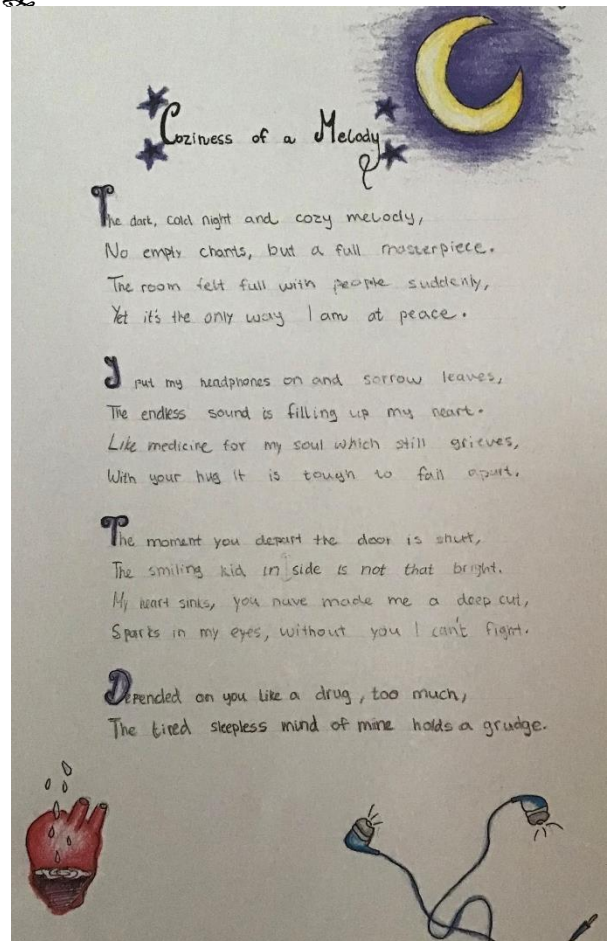 Coziness of a Melody
The dark, cold night and cozy melody,
No empty chants, but a full masterpiece.
The room felt full with people suddenly,
Yet it's the only way I am at peace.
I put my headphones on and sorrow leaves,
The endless sound is filling up my heart.
Like medicine for my soul which still grieves,
With your hug it is tough to fall apart.
The moment you depart the door is shut,
The smiling kid in side is not that bright.
My heart sinks, you have made me a deep cut,
Sparks in my eyes, without you I can't fight.
Depended on you like a drug, too much,
The tired sleepless mind of mine holds a grudge.